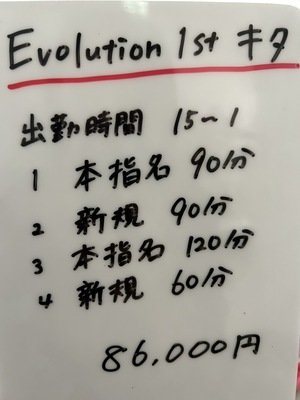 Evolution 1st キタ
出勤時間 15～1
1 本指名 90分
2 新規 90分
3 本指名 120分
4 新規 60分
86,000円